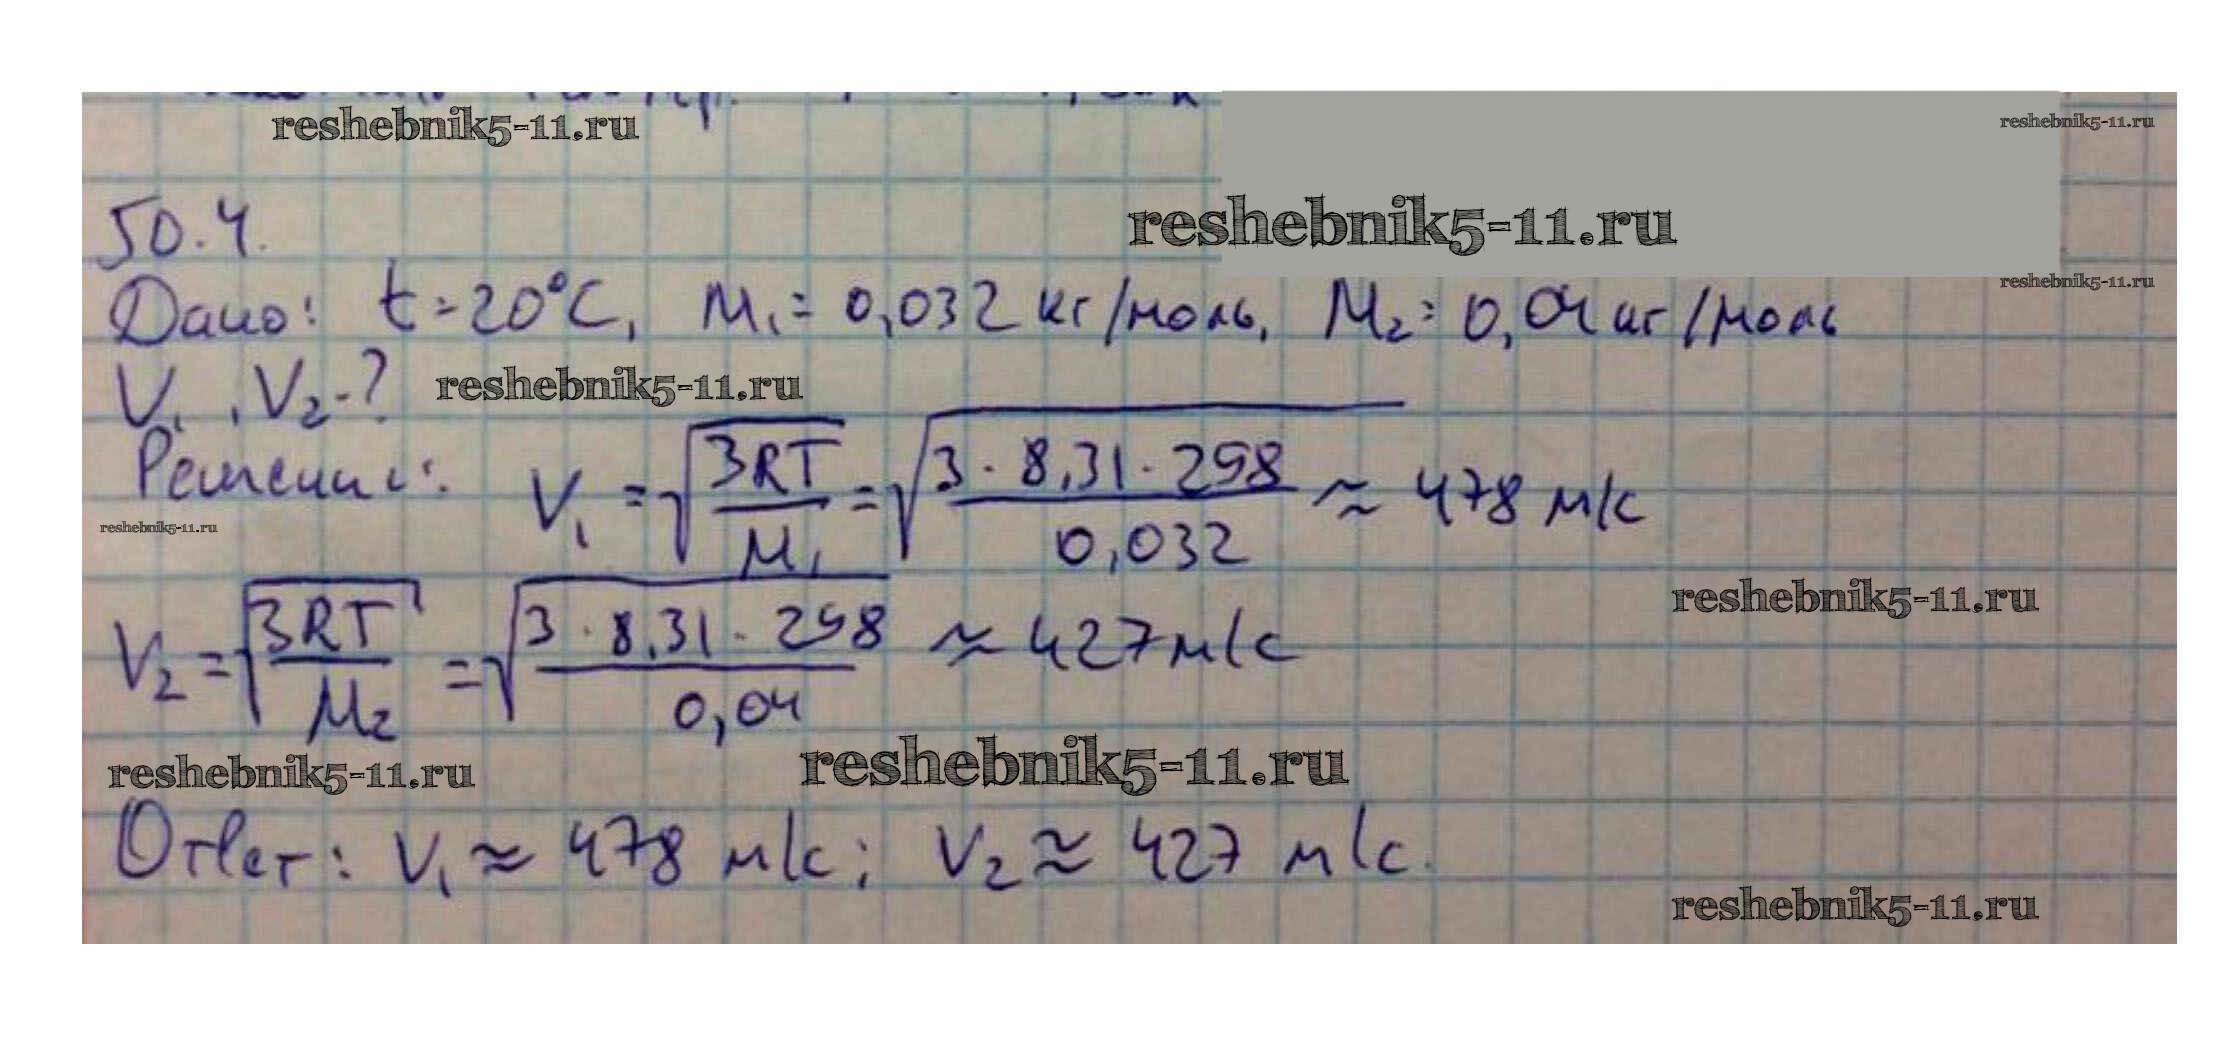 reshebnik5-11.ru reshebnik5-11.ru
50.4. reshebnik5-11.ru
reshebnik5-11.ru
Дано: t = 20°C, M₁ = 0,032 кг/моль, M₂ = 0,04 кг/моль
V₁, V₂ - ? reshebnik5-11.ru
Решение: V₁ = √(3RT/M₁) = √(3 · 8,31 · 298/0,032) ≈ 478 м/с
reshebnik5-11.ru
reshebnik5-11.ru
V₂ = √(3RT/M₂) = √(3 · 8,31 · 298/0,04) ≈ 427 м/с
reshebnik5-11.ru reshebnik5-11.ru
Ответ: V₁ ≈ 478 м/с; V₂ ≈ 427 м/с.
reshebnik5-11.ru